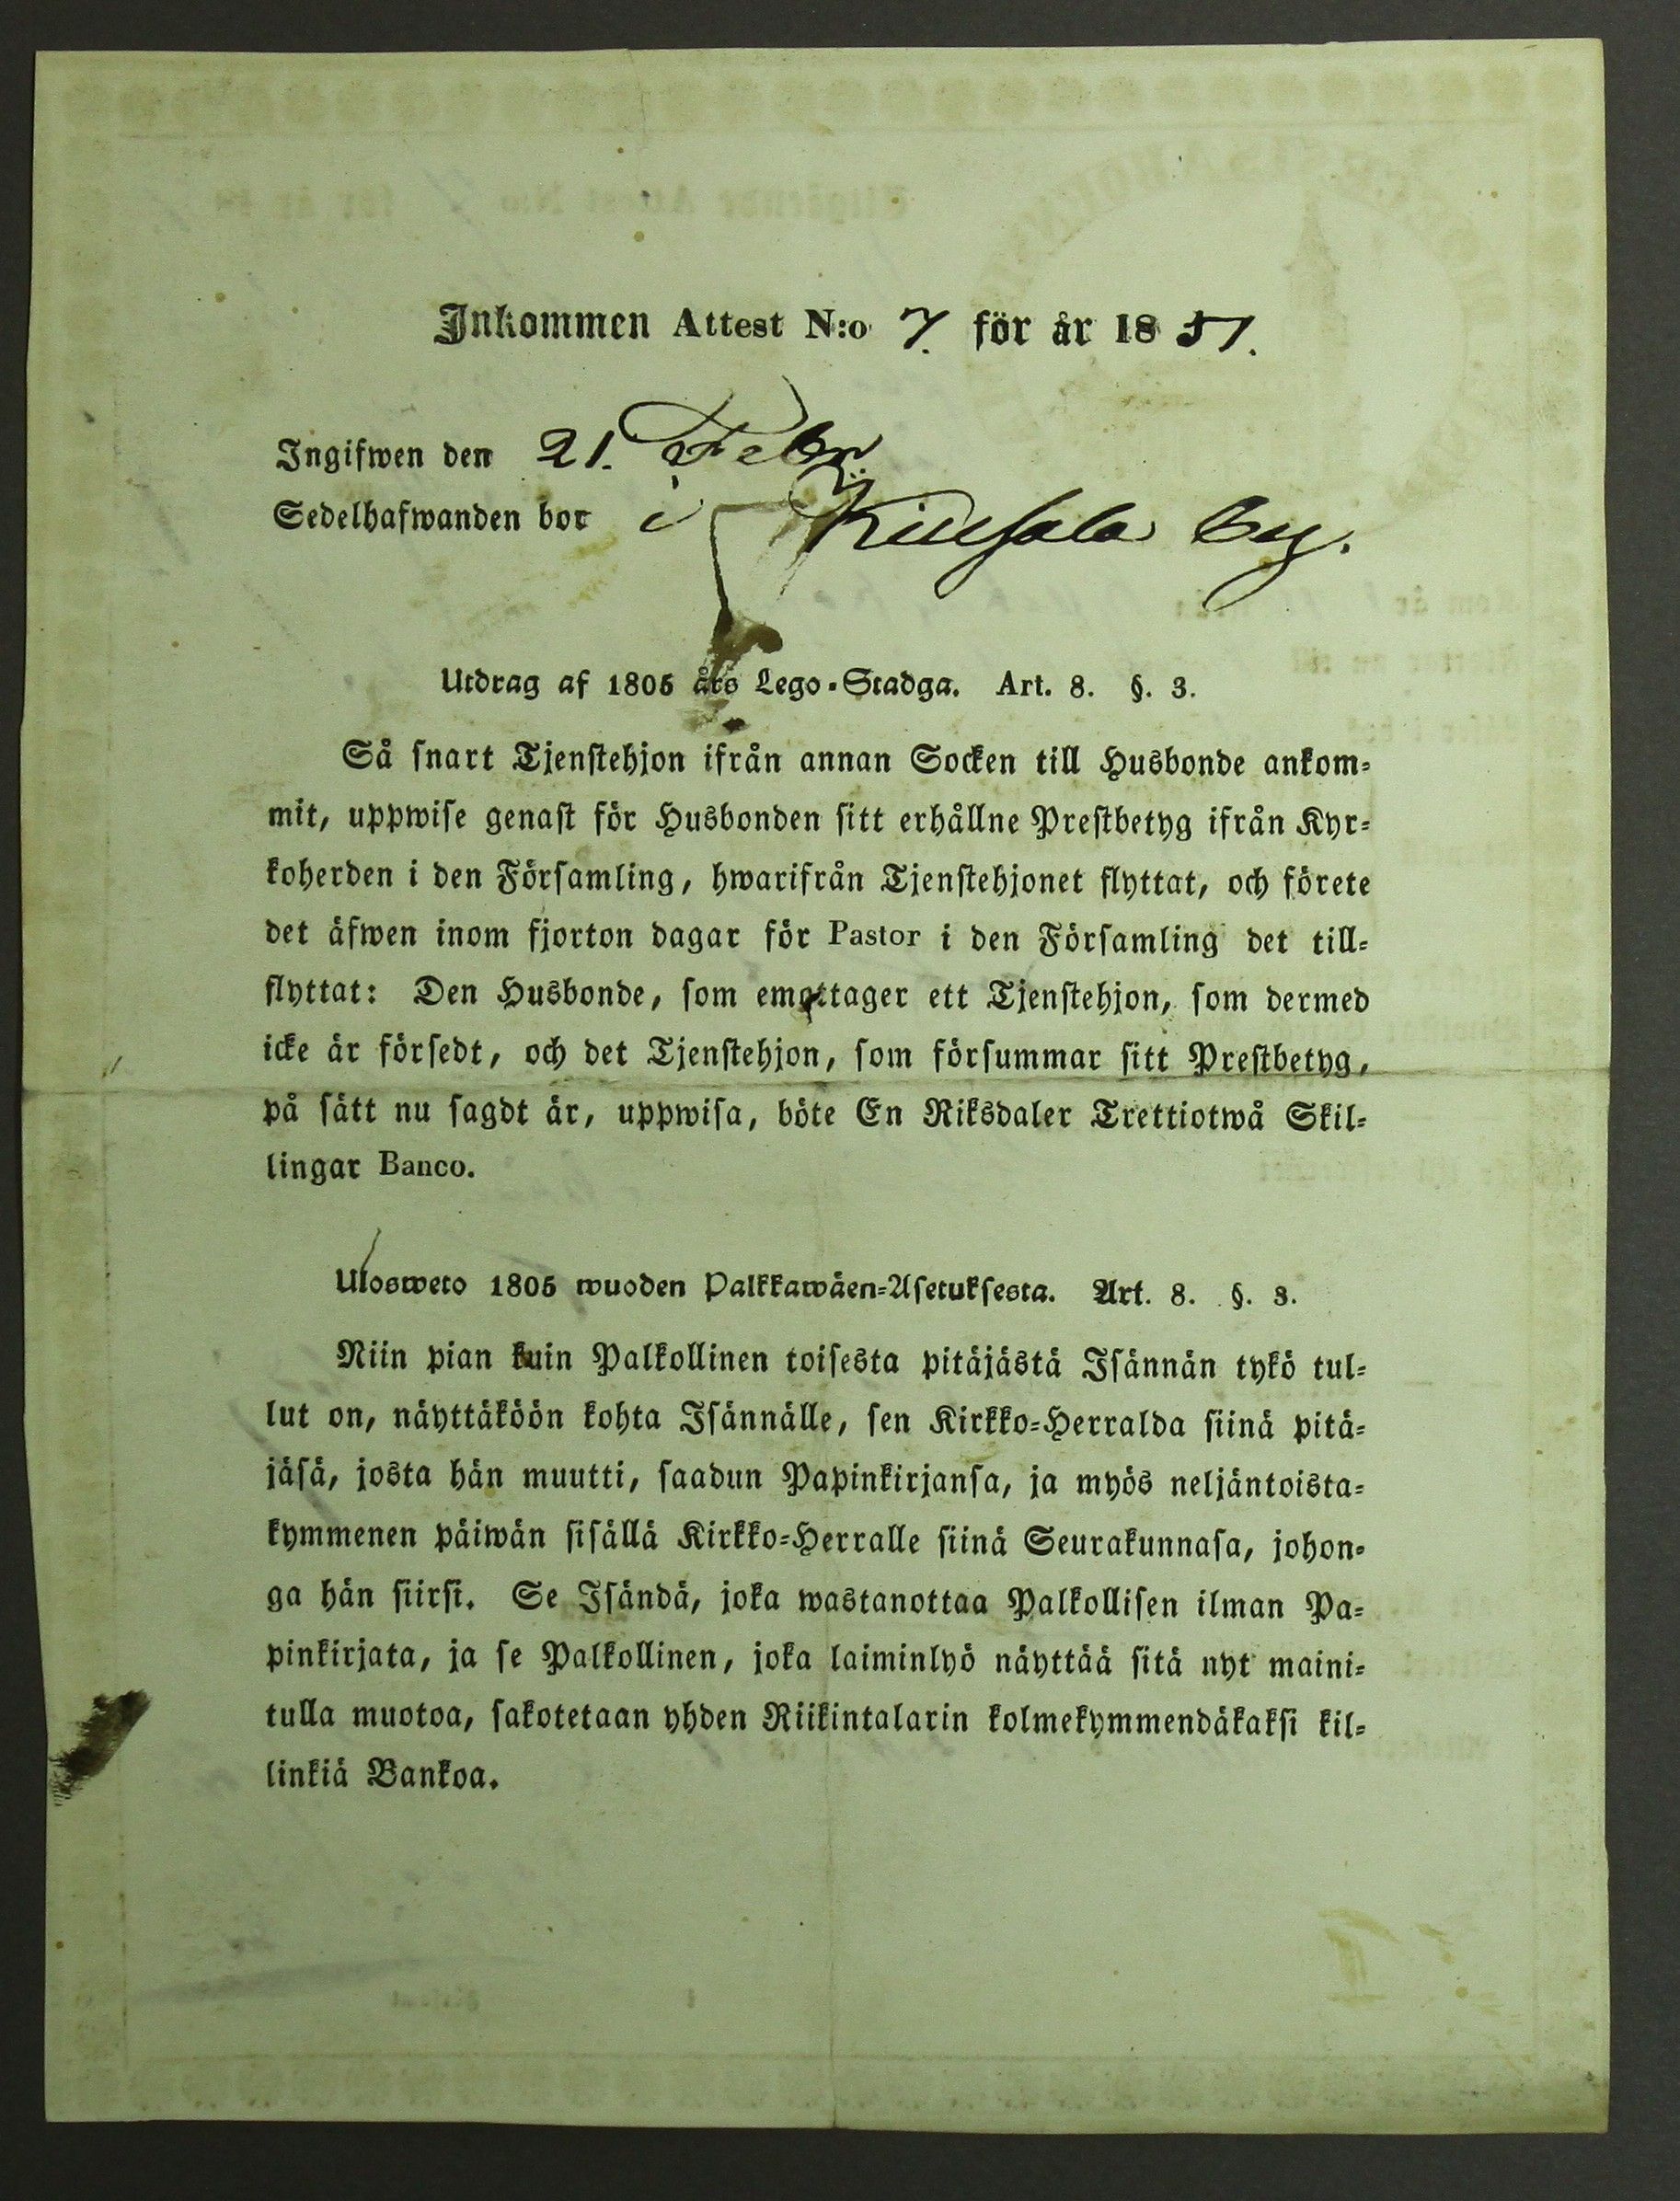 Inkommen Attest N:o 7. för år 1851.
Ingifwen den 21. Febr
Sedelhafwanden bor i by.
Utdrag af 1805 års Lego-Stadga. Art. 8. §. 3.
Så snart Tjenstehjon ifrån annan Socken till Husbonde ankom-
mit, uppwise genast för Husbonden sitt erhållne Prestbetyg ifrån Kyr-
koherden i den Församling, hwarifrån Tjenstehjonet flyttat, och förete
det äfwen inom fjorton dagar för Pastor i den Församling det till-
flyttat: Den Husbonde, som emottager ett Tjenstehjon, som dermed
icke är försedt, och det Tjenstehjon, som försummar sitt Prestbetyg,
på sätt nu sagdt är, uppwisa, böte En Riksdaler Trettiotwå Skil-
lingar Banco.
Ulosweto 1805 wuoden Palkkawäen-Asetuksesta. Art. 8. §. 3.
Niin pian kuin Palkollinen toisesta pitäjästä Isännän tykö tul-
lut on, näyttäköön kohta Isännälle, sen Kirkko-Herralda siinä pitä-
jäsä, josta hän muutti, saadun Papinkirjansa, ja myös neljäntoista-
kymmenen päiwän sisällä Kirkko-Herralle siinä Seurakunnasa, johon-
ga hän siirsi. Se Isändä, joka wastanottaa Palkollisen ilman Pa-
pinkirjata, ja se Palkollinen, joka laiminlyö näyttää sitä nyt maini-
tulla muotoa, sakotetaan yhden Riikintalarin kolmekymmendäkaksi kil-
linkiä Bankoa.